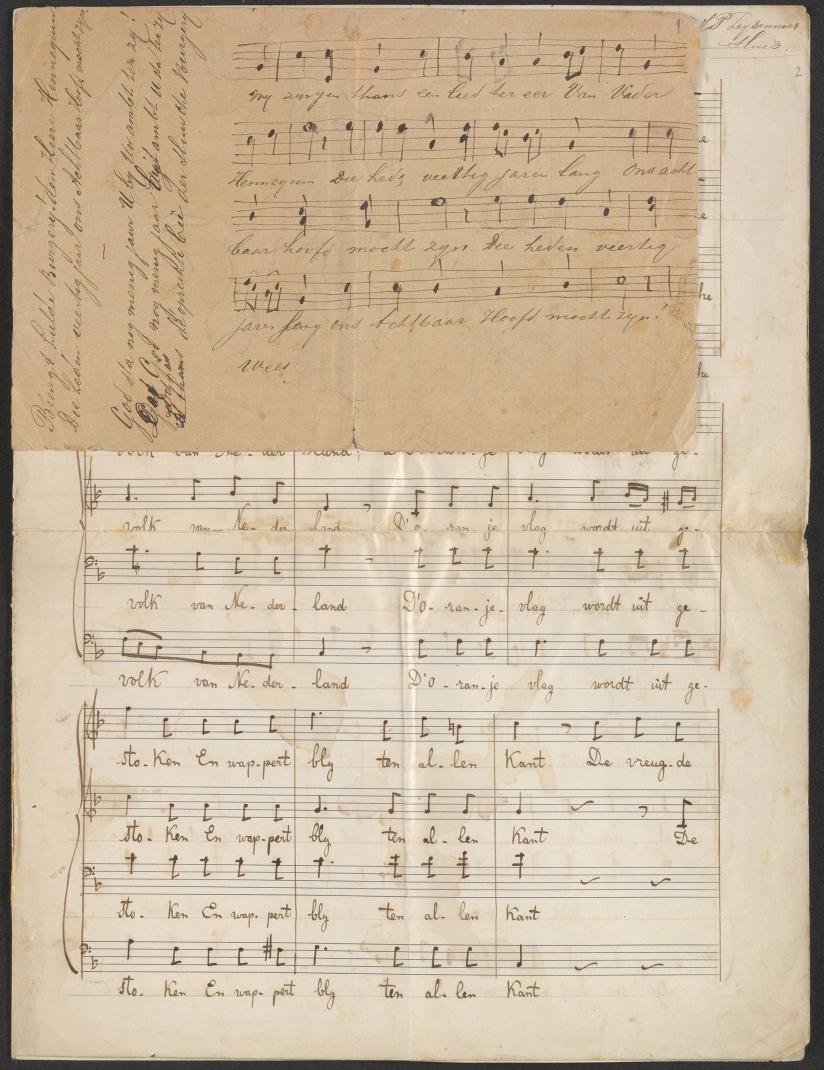 1
2
Wy zingen thans een lied ter eer Van Vader
Hennequin Die heden veertig jaren lang Ons acht
baar hoofd mocht zyn Die heden veertig
jaren lang ons Achtbaar Hoofd mocht zyn!
Wees
Brengt hulde Burgery! den Heere Hennequin
Die heden veertig jaar ons Achtbaar Hoofd mocht zyn.
God sta nog menig jaar U by Uw ambt ter zy!
Dat God nog menig jaar Uw ambt U sta ter zy
thans de Burgery
e
e
he
he
volk van Ne- der land; je
volk van Ne- der land D'o- ran- je vlag wordt uit ge-
volk van Ne- der- land D'o- ran- je- vlag wordt uit ge-
volk van Ne- der- land D'o- ran- je vlag wordt uit ge-
sto- ken En wap- pert bly ten al- len Kant De vreug- de
sto- ken En wap- pert bly ten al- len Kant De
sto- ken En wap- pert bly ten al- len Kant
sto- ken En wap- pert bly ten al- len Kant